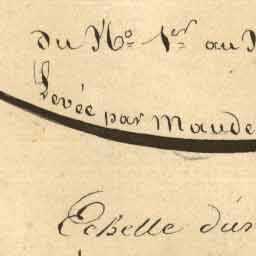 du No. 1er au
Levée par Maude
Echelle d'un